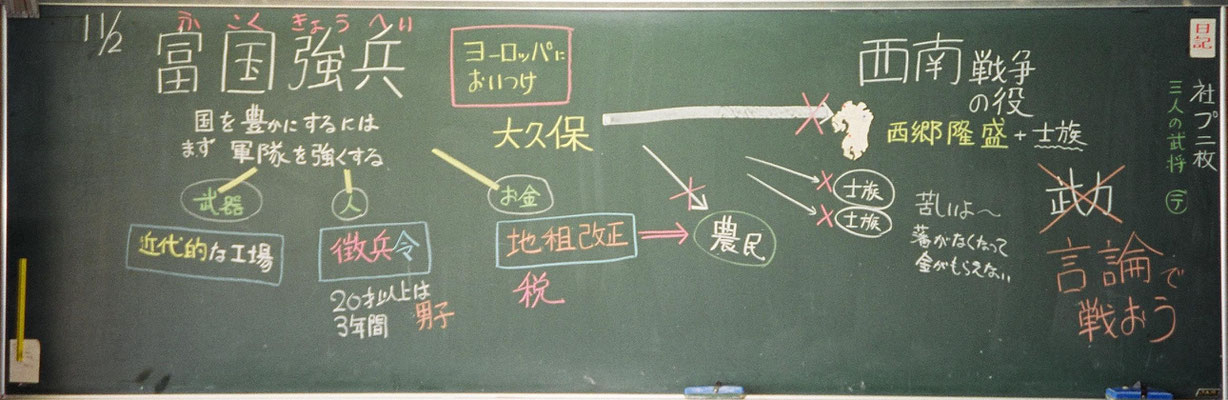 11/2
ふ こく きょう へい
富国強兵
国を豊かにするには
まず 軍隊を強くする
武器
人
お金
近代的な工場
徴兵令
20才以上は
3年間
男子
地租改正
税
ヨーロッパに
おいつけ
大久保
農民
西南戦争
の役
西郷隆盛+士族
士族
士族
苦しいよ〜
藩がなくなって
金がもらえない
武力
言論で
戦おう
日記
社プ二枚
三人の武将 テ